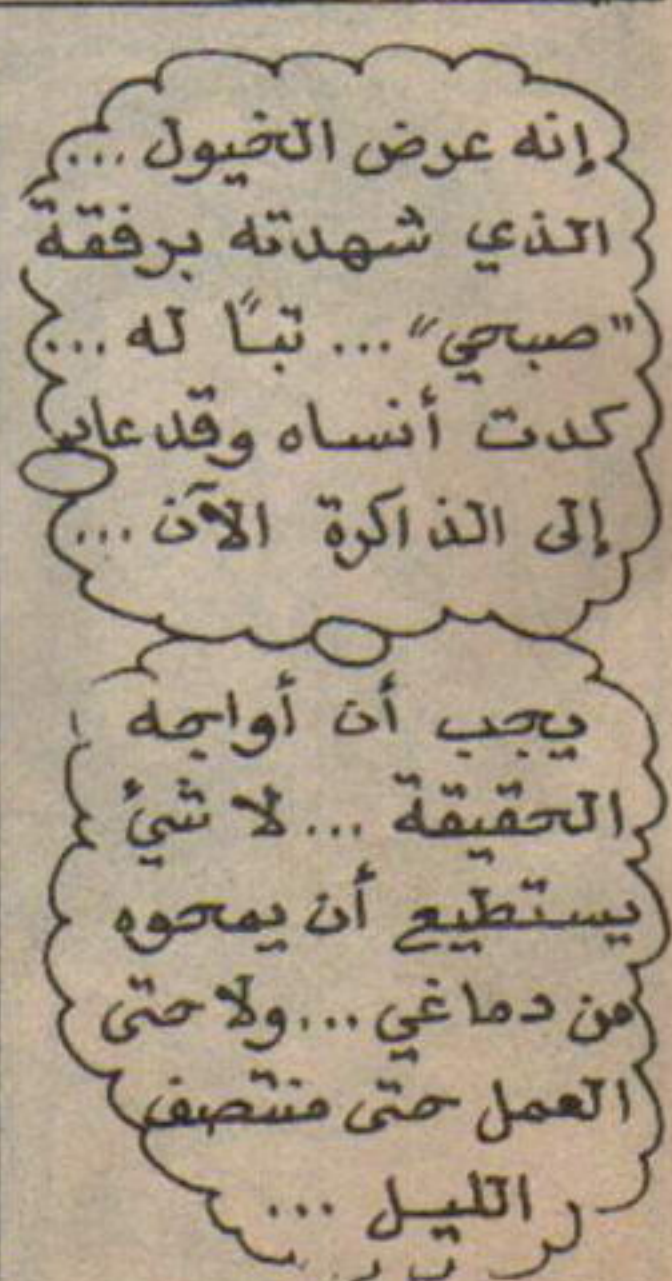 إنه عرض الخيول...
الذي شهدته برفقة
"صبحي"... تبًا له...
كدت أنساه وقد عاد
إلى الذاكرة الآن...
يجب أن أواجه
الحقيقة... لا شيئ
يستطيع أن يمحوه
من دماغي... ولا حتى
العمل حتى منتصف
الليل...